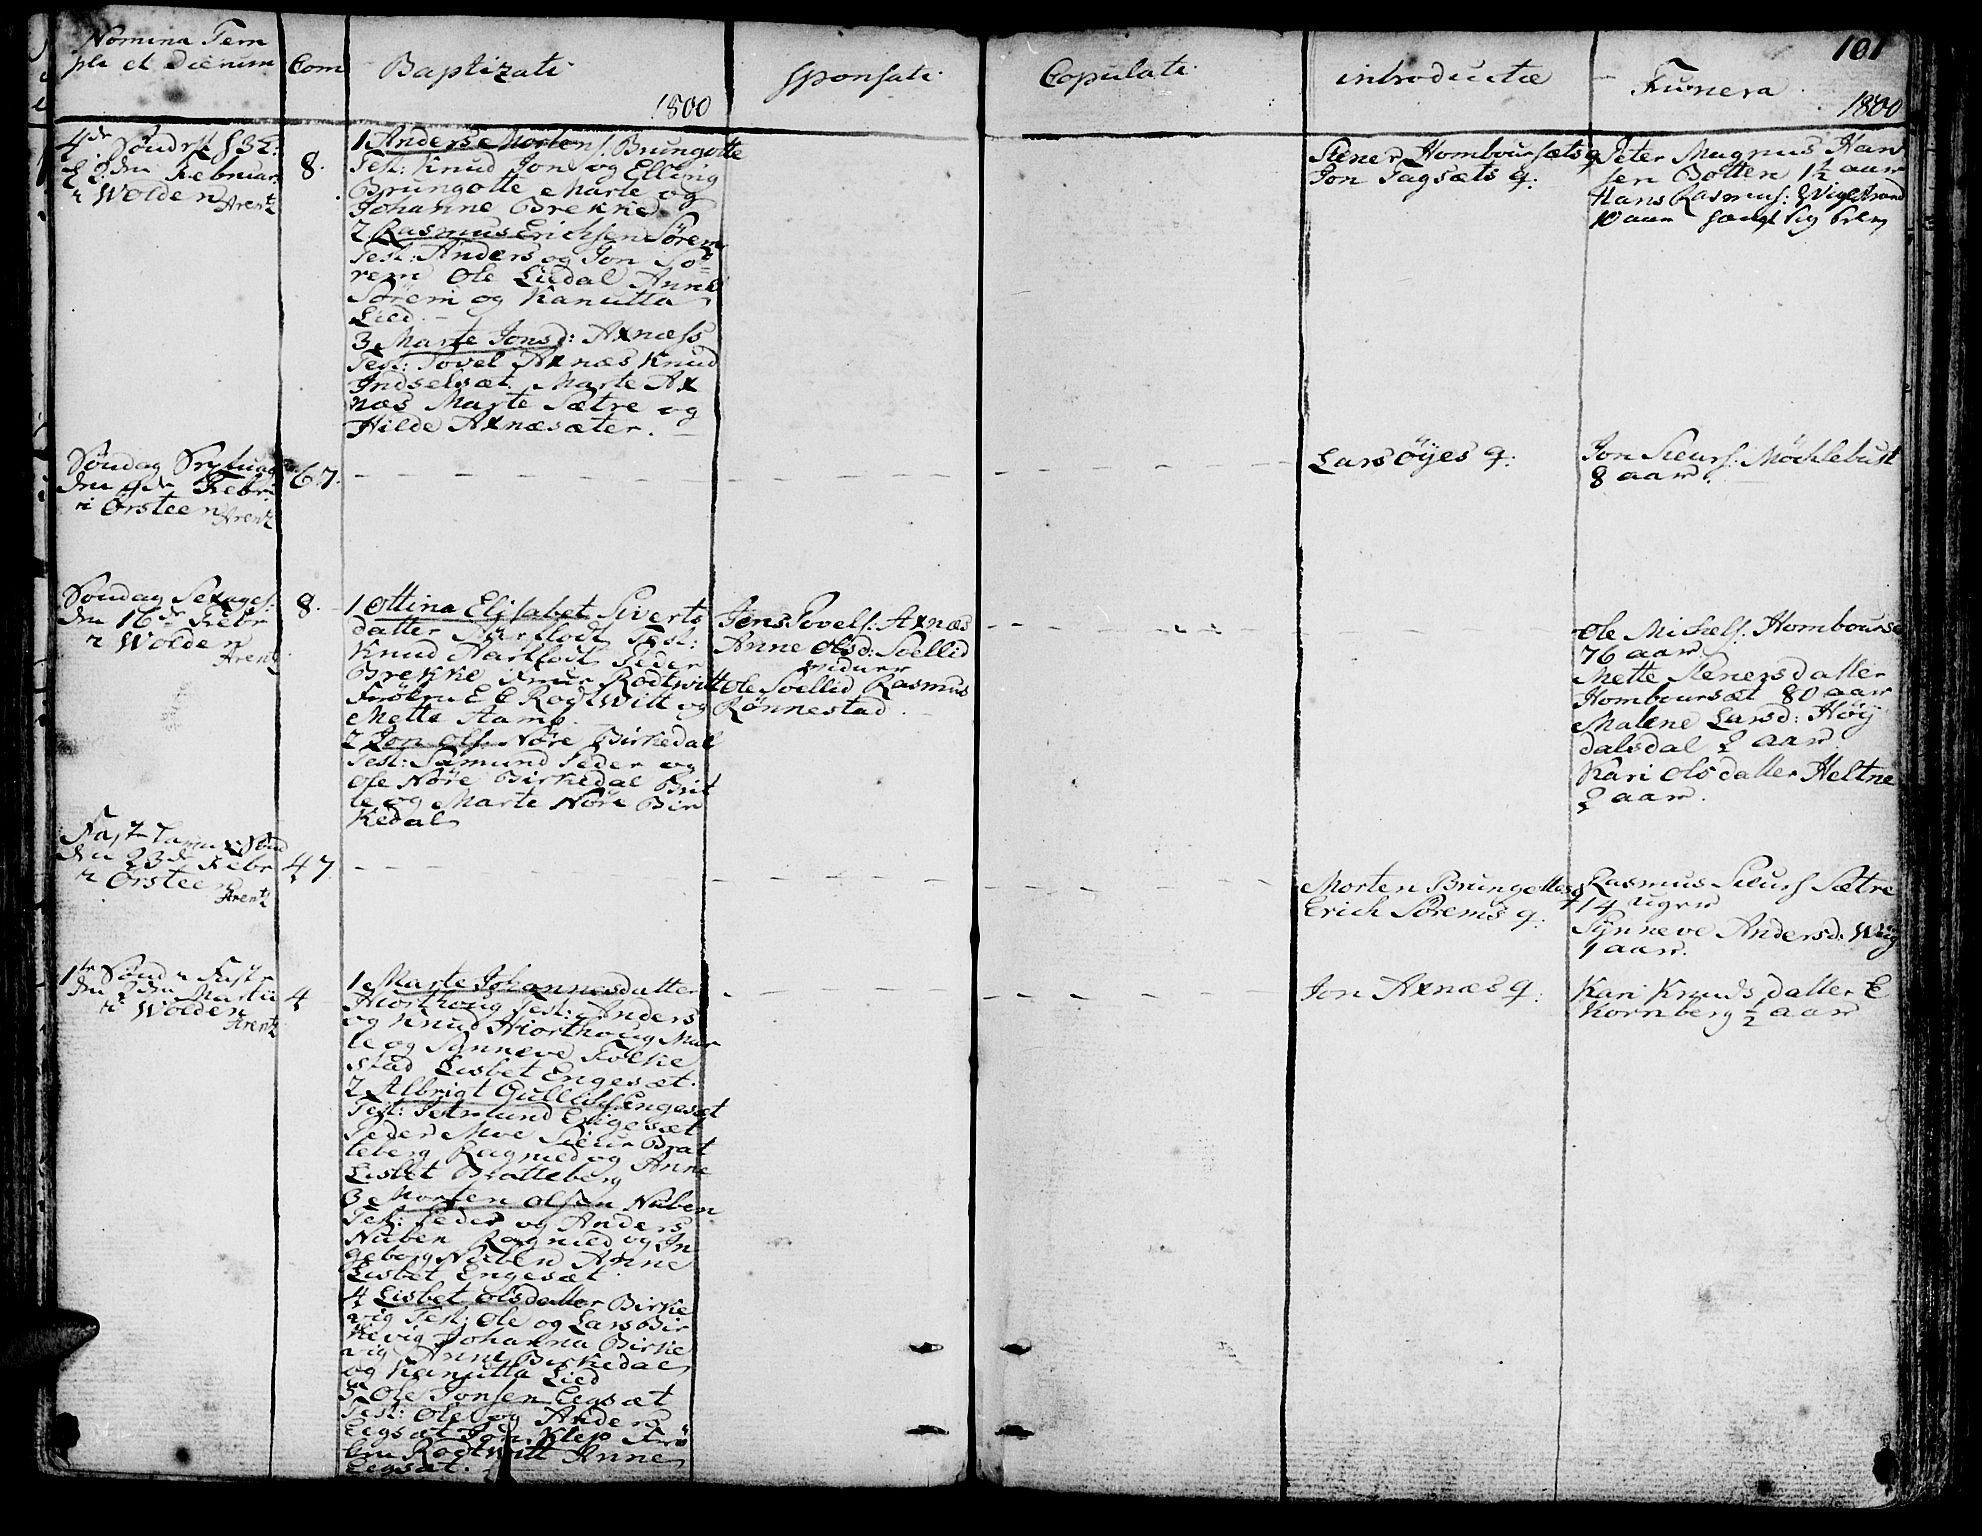 101
Nomina Tem
pli et Dierum
Com
Baptizati
1800
Sponsati
Copulati
introductæ
Funera
1800
4de Søndag
den Februar
i Wolden
Arentz
8.
1 Anders Mortens. Brungotte
Test: Knud Jon og Elling
Brungotte Marte og
Johanne Brekke
2 Rasmus Erichsen Sørem
Test: Anders og Jon Sø
rem Ole Liedal Anne
Sørem og Kanutta
Lied.
3 Marte Jonsd: Axnæss
Test: Povel Axnæs Knud
Indselsæt Marte Ax
næs Marte Sætre og
Hilde Axnæsæter.
Stener Homboursæts q
Jon Tagsæts q:
Peter Magnus Han
sen Botten 1½ aar
Hans Rasmus:
10 aar
Søndag
den 9de Febr.
i Ørsteen
Arentz
67.
Lars Øyes q:
Jon Siurs: Möchlebust
8 aar.
Søndag Sexages:
den 16de Febr
i Wolden
Arentz
8.
1 Ottina Elisabet Siverts
datter Test:
Knud Peder
Brekke Rodtwitt
Frøken E E Rodtwitt og
Mette Stamp.
2 Jon Ols. Nøre Birkedal
Test: Samund Peder og
Ole Nøre Birkedal Brit
te og Marte Nøre Bir
kedal
Jens Povels: Axnæs
Anne Olsd: Soellid
Ole Soellid Rasmus
Rønnestad
Ole Michels. Hombourse
76 aar
Mette Stenersdatter
Homboursæt 80 aar
Malene Larsd: Høy
dalsdal 2 aar
Kari Olsdatter Heltne
2 aar.
den 23de Febr
i Ørsteen
Arentz
47.
Morten Brungottes q
Erich Sørems q:
Rasmus Siurs Sætre
14 uger
Synneve Andersd: Wiig
1 aar.
1te Sønd i Faste
den 2den Martii
i Wolden
Arentz
4
1 Marte Johannesdatter
Hiorthoug Test: Anders
og Knud Hiorthoug Mar
te og Synneve Folke
stad Lisbet Engesæt.
2 Albrigt Engesæt
Test: Engesæt
Peder Moe Siur Brat
teberg Ragnild og Anne
Lisbet Bratteberg
3 Morten Olsen Nuben
Test: Peder og Anders
Nuben Ragnild og In
geborg Nuben Anne
Lisbet Engesæt.
4 Lisbet Olsdatter Birke
vig Test: Ole og Lars Bir
kevig Johanna Birke
vig Anne Birkedal
og Kanutta Lied
5 Ole Jonsen Eigsæt
Test: Ole og Anders
Eigsæt Jon Klep Frø
ken Rodtwitt Anne
Eigsæt.
Jon Axnæs q:
Kari Knudsdatter E
Kornberg ½ aar